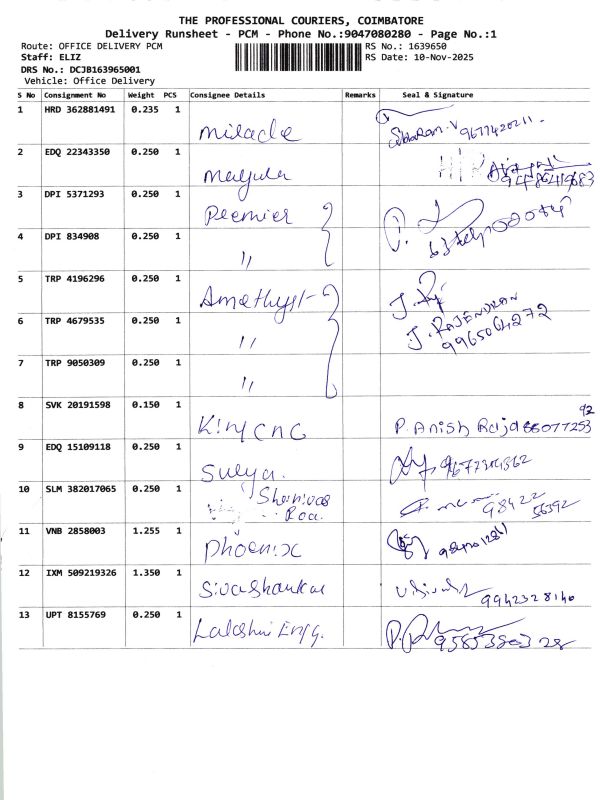 THE PROFESSIONAL COURIERS, COIMBATORE
Delivery Runsheet - PCM - Phone No.:9047080280 - Page No.:1
Route: OFFICE DELIVERY PCM
RS No.: 1639650
Staff: ELIZ
RS Date: 10-Nov-2025
DRS No.: DCJB163965001
Vehicle: Office Delivery
S No Consignment No Weight PCS Consignee Details Remarks Seal & Signature
1 HRD 362881491 0.235 1 Miracle 9677420211
2 EDQ 22343350 0.250 1
3 DPI 5371293 0.250 1 Premier
4 DPI 834908 0.250 1 "
5 TRP 4196296 0.250 1 Amethyst
6 TRP 4679535 0.250 1 " J. RAJENDRAN
9965064272
7 TRP 9050309 0.250 1 "
8 SVK 20191598 0.150 1 King CNC P. Anish Raja
9 EDQ 15109118 0.250 1 Surya.
10 SLM 382017065 0.250 1 98422
56392
11 VNB 2858003 1.255 1 Phoenix
12 IXM 509219326 1.350 1 Sivashankar 9942328140
13 UPT 8155769 0.250 1 Lakshmi Engg. 9585380328